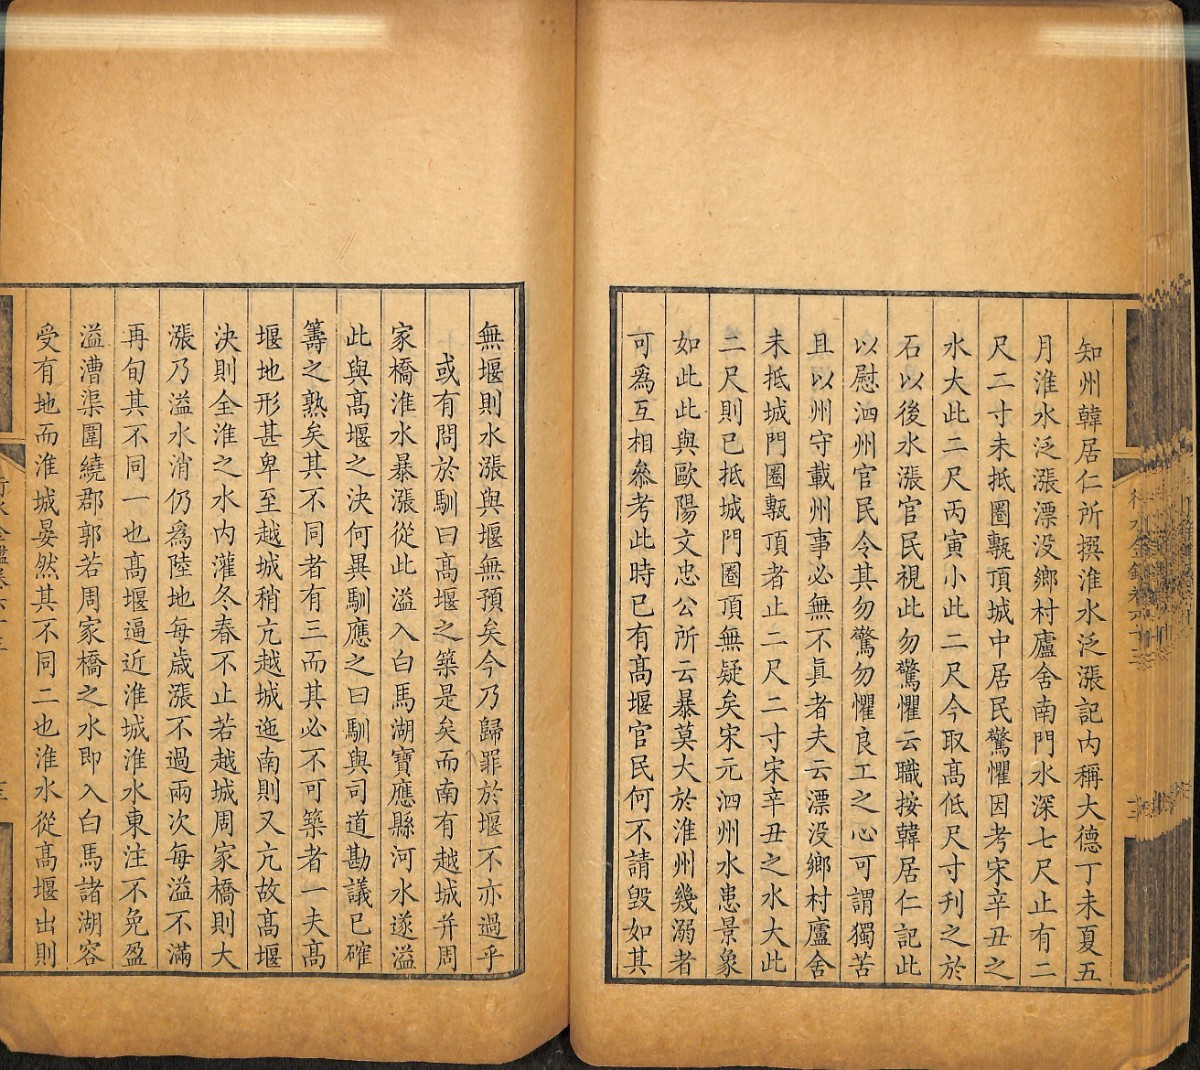 知州韓居仁所撰淮水泛漲記内稱大德丁未夏五
月淮水泛漲漂没鄉村廬舍南門水深七尺止有二
尺二寸未抵圈甎頂城中居民驚懼因考宋辛丑之
水大此二尺丙寅小此二尺今取髙低尺寸刋之於
石以後水漲官民視此勿驚懼云職按韓居仁記此
以慰泗州官民令其勿驚勿懼良工之心可謂獨苦
且以州守載州事必無不真者夫云漂没鄉村廬舍
未抵城門圈甎頂者止二尺二寸宋辛丑之水大此
二尺則已抵城門圈頂無疑矣宋元泗州水患景象
如此此與歐陽文忠公所云暴莫大於淮州幾溺者
可爲互相叅考此時已有髙堰官民何不請毀如其
無堰則水漲與堰無預矣今乃歸罪於堰不亦過乎
或有問於馴曰髙堰之築是矣而南有越城并周
家橋淮水暴漲從此溢入白馬湖寶應縣河水遂溢
此與髙堰之決何異馴應之曰馴與司道勘議已確
籌之熟矣其不同者有三而其必不可築者一夫髙
堰地形甚卑至越城稍亢越城迤南則又亢故髙堰
決則全淮之水内灌冬春不止若越城周家橋則大
漲乃溢水消仍爲陸地每歳漲不過兩次每溢不滿
再旬其不同一也髙堰逼近淮城淮水東注不免盈
溢漕渠圍繞郡郭若周家橋之水即入白馬諸湖容
受有地而淮城晏然其不同二也淮水從髙堰出則